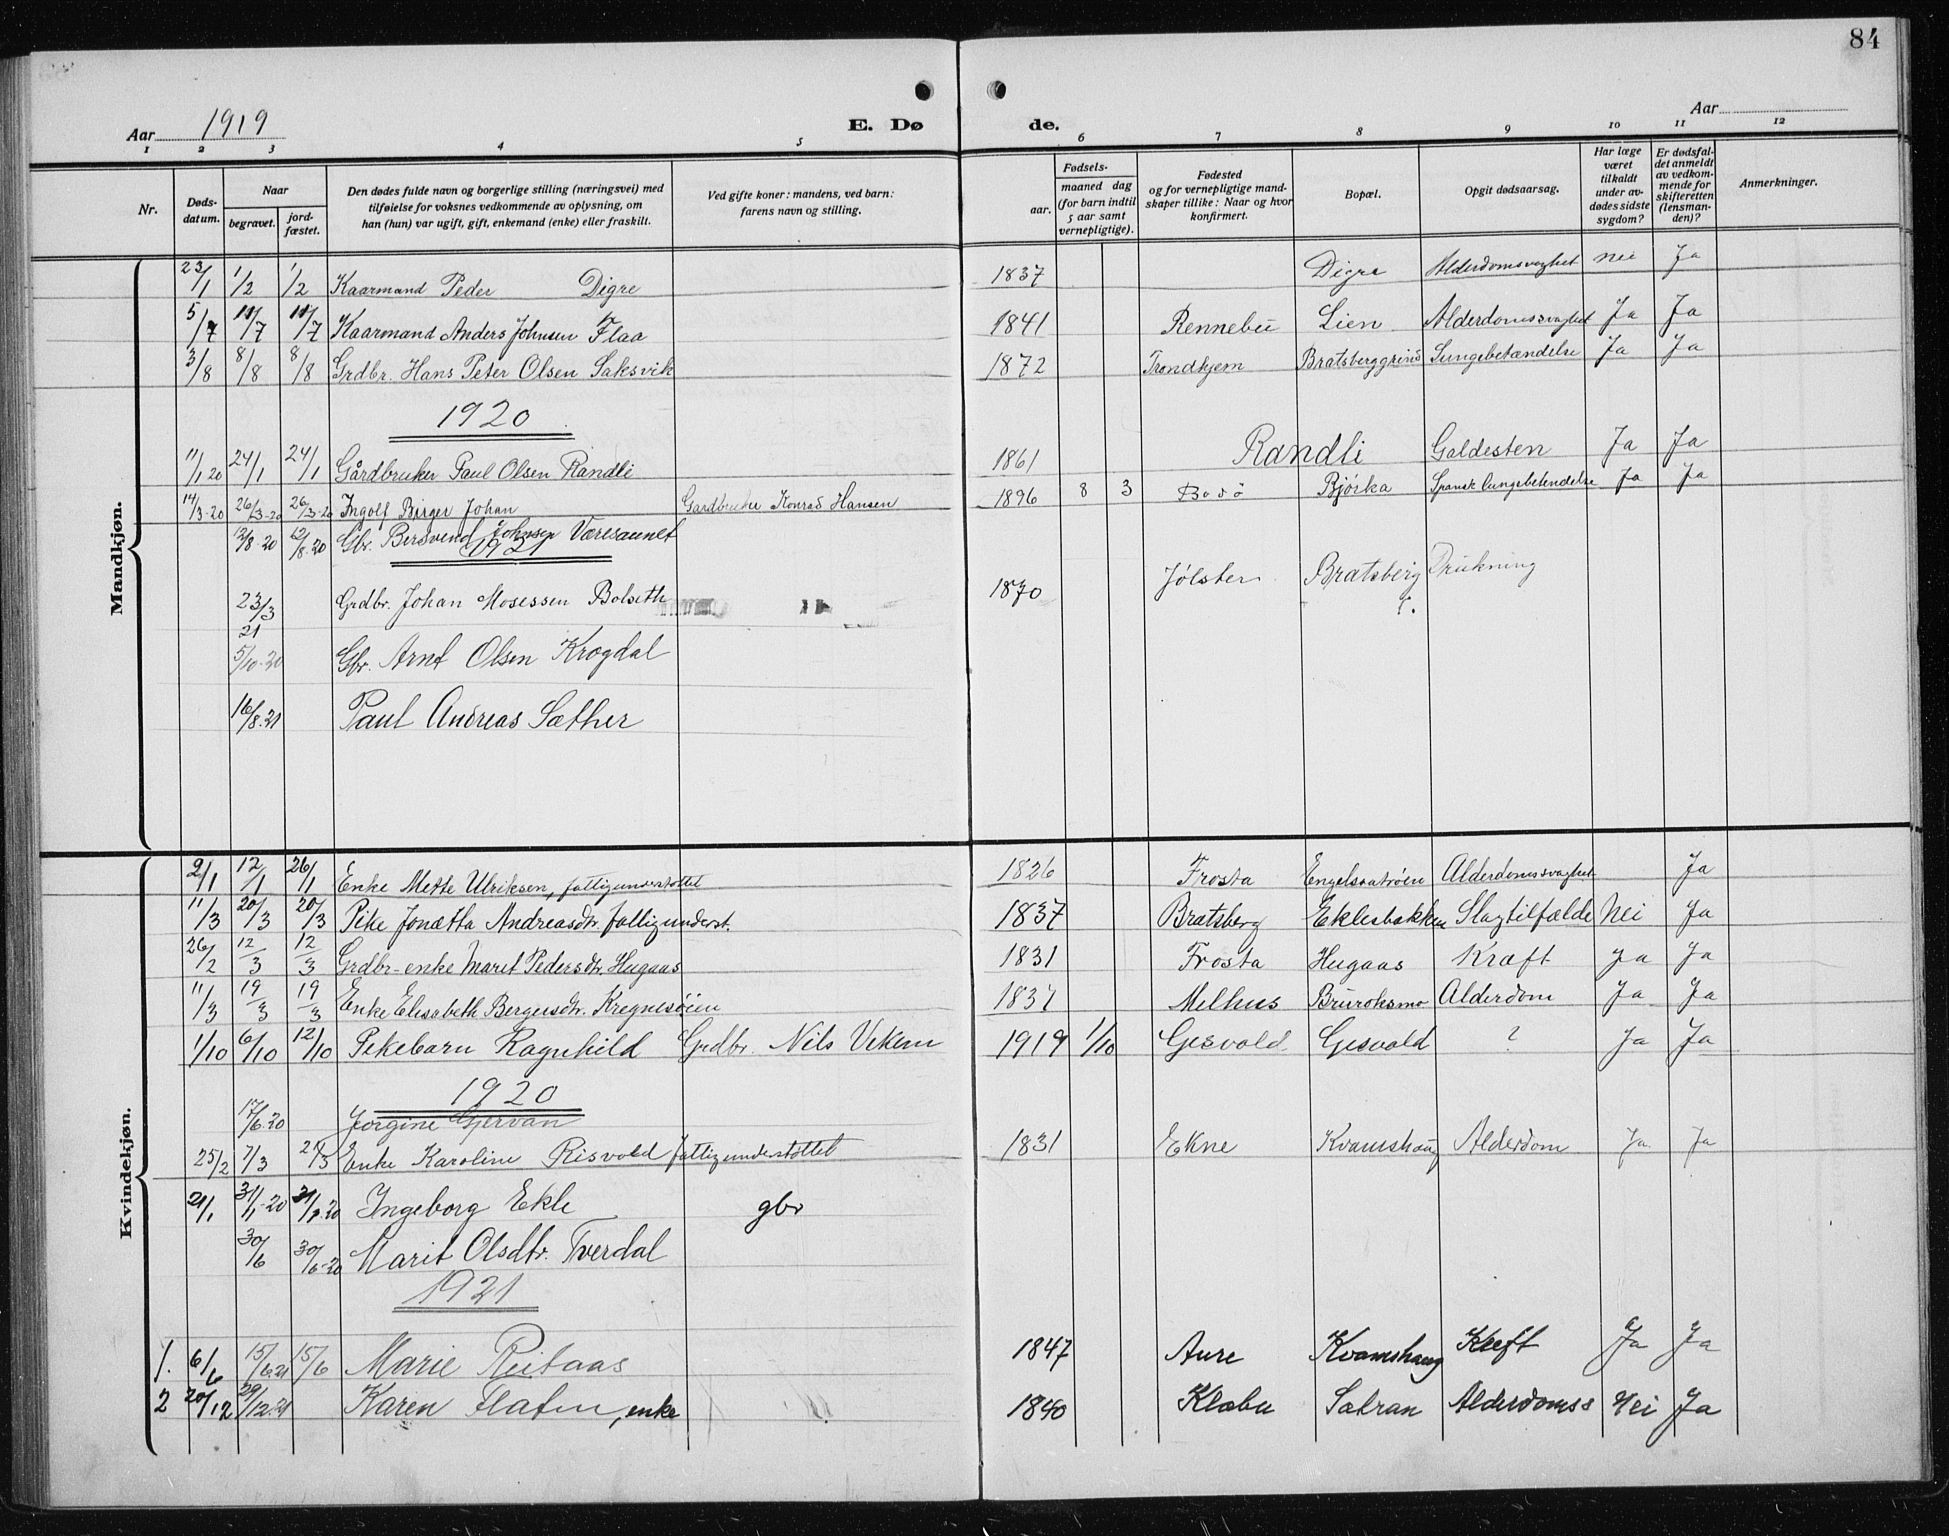 84
Aar 1919 E. Dø de. Aar
1 2 3 4 5 6 7 8 9 10 11 12
Nr. Døds-datum. Naar begravet. jord-fæstet. Den dødes fulde navn og borgerlige stilling (næringsvei) med tilføielse for voksnes vedkommende av oplysning, om han (hun) var ugift, gift, enkemand (enke) eller fraskilt. Ved gifte koner: mandens, ved barn: farens navn og stilling. Fødsels- aar. maaned dag (for barn indtil 5 aar samt vernepligtige). Fødested og for vernepligtige mandskaper tillike: Naar og hvor konfirmert. Bopæl. Opgit dødsaarsag. Har læge været tilkaldt under avdødes sidste sygdom? Er dødsfaldet anmeldt av vedkommende for skifteretten (lensmanden)? Anmerkninger.
Mandkjøn.
23/1 1/2 1/2 Kaarmand Peder Digre 1837 Digre Alderdomsvaghet Nei Ja
5/7 11/7 11/7 Kaarmand Anders Johnsen Flaa 1841 Rennebu Lien Alderdomssvaghet Ja Ja
3/8 8/8 8/8 Grdbr. Hans Peter Olsen Saksvik 1872 Trondhjem Bratsberggrind Lungebetændelse Ja Ja
1920
11/1 20 24/1 24/1 Gårdbruker Paul Olsen Randli 1861 Randli Galdesten Ja Ja
14/3-20 26/3-20 26/3-20 Ingolf Birger Johan Gardbruker Konrad Hansen 1896 8 3 Bodö Bjørka Spansk lungebetendelse Ja Ja
12/8 20 12/8.20 Gbr. Bersvend Johnsen Væresaunet
1921
23/3 21 Grdbr. Johan Mosessen Bolseth 1870 Jølster Bratsberg Drukning
5/10-20 Gbr. Arnt Olsen Krogdal
16/8.21 Paul Andreas Sæther
Kvindekjøn.
2/1 12/1 26/1 Enke Mette Ulriksen, fattigunderstøttet 1826 Frosta Engelsaatrøen Alderdomssvaghet Ja
11/3 20/3 20/3 Pike Jonætta Andreasdtr. fattigunderst. 1837 Bratsberg Eklesbakken Slagtilfælde Nei Ja
26/2 12/3 12/3 Grdbr-enke Marit Pedersdtr Hugaas 1831 Frosta Hugaas Kræft Ja Ja
11/3 19/3 19/3 Enke Elisabeth Bergersdtr. Kregnesøien 1837 Melhus Bruroksmo Alderdom Ja Ja
1/10 6/10 12/10 Pikebarn Ragnhild Grdbr. Nils Vekem 1919 1/10 Gisvold Gisvold ? Ja Ja
1920
17/6.20 Jorgine Gjervan
25/2 7/3 21/3 Enke Karoline Risvold fattigunderstøttet 1831 Ekne Kvamshaug Alderdom Ja Ja
21/1 31/1-20 31/1-20 Ingeborg Ekle gbr
30/6 30/6-20 Marit Olsdtr. Tverdal
1921
1. 6/6 15/6.21 15/6 Marie Reitaas 1847 Aure Kvamshaug Kreft Ja Ja
2 20/12 29/12.21 Karen Flaten, enke 1840 Klæbu Sætran Alderdomss Nei Ja